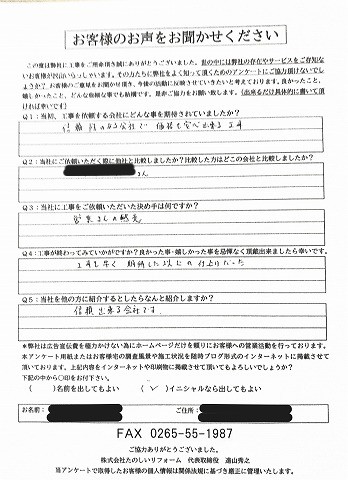 お客様のお声をお聞かせください
この度は弊社に工事をご用命頂き誠にありがとうございました。世の中には弊社の存在やサービスをご存知な
いお客様が沢山いらっしゃいます。その方たちに弊社をよく知って頂くためのアンケートにご協力頂けないでし
ょうか？お客様のご意見をお聞かせ頂き、今後の活動に反映させていきたいと考えております。良かったこと、
嬉しかったこと、どんな些細な事でも結構です。是非ご協力をお願い致します。（出来るだけ具体的に書いて頂
ければ幸いです）
Q1：当初、工事を依頼する会社にどんな事を期待されていましたか？
信頼性のある会社で 価格も 出来る工事
Q2：当社にご依頼いただく際に他社と比較しましたか？比較した方はどこの会社と比較しましたか？
さん
Q3：当社に工事をご依頼いただいた決め手は何ですか？
営業さんの
Q4：工事が終わってみていかがですか？良かった事・嬉しかった事を忌憚なく頂戴出来ましたら幸いです。
工事も早く 期待した以上の仕上りだった
Q5：当社を他の方に紹介するとしたらなんと紹介しますか？
信頼出来る会社です
＊弊社は広告宣伝費を極力かけない為にホームページだけを頼りにお客様への営業活動を行っております。
本アンケート用紙またはお客様宅の調査風景や施工状況を随時ブログ形式のインターネットに掲載させて
頂いております。上記内容をインターネットや印刷物に掲載させて頂いてもよろしいでしょうか？
下記の中から〇印をお付下さい。
（　）名前を出してもよい　（✓）イニシャルなら出してもよい
お名前：　ご住所：
FAX 0265-55-1987
ご協力ありがとうございました。
株式会社たのしいリフォーム　代表取締役　遠山秀之
※アンケートで取得したお客様の個人情報は関係法規に基づき厳正に管理いたします。